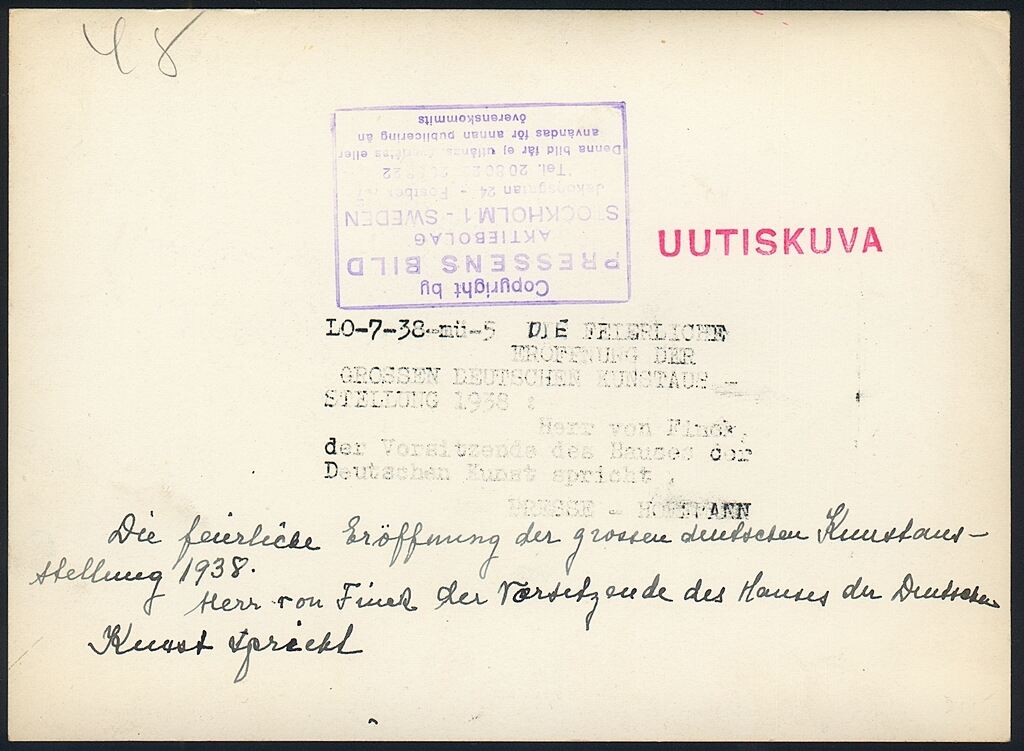 48
Copyright by
PRESSENS BILD
AKTIEBOLAG
STOCKHOLM 1 - SWEDEN
Jakobsgatan 24 - Postbox
Tel. 20 80 22
Denna bild får ej utlånas, överlåtas eller
användas för annan publicering än
överenskommits
UUTISKUVA
LO-7-38-mü-5 DIE FEIERLICHE
ERÖFFNUNG DER
GROSSEN DEUTSCHEN KUNSTAUS-
STELLUNG 1938 :
Herr von Finck,
der Vorsitzende des Hauses der
Deutschen Kunst spricht.
PRESSE - HOFFMANN
Die feierliche Eröffnung der grossen deutschen Kunstaus-
stellung 1938.
Herr von Finck der Vorsitzende des Hauses der Deutschen
Kunst spricht